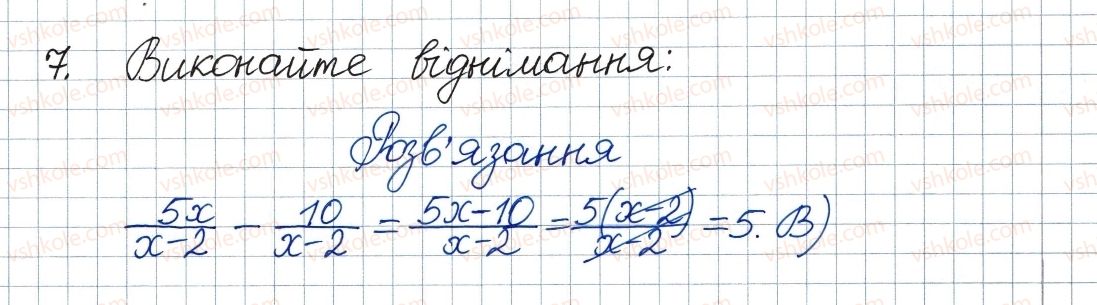 7. Виконайте віднімання:
Розв'язання
5x/(x-2) - 10/(x-2) = (5x-10)/(x-2) = 5(x-2)/(x-2) = 5. В)
vshkole.com